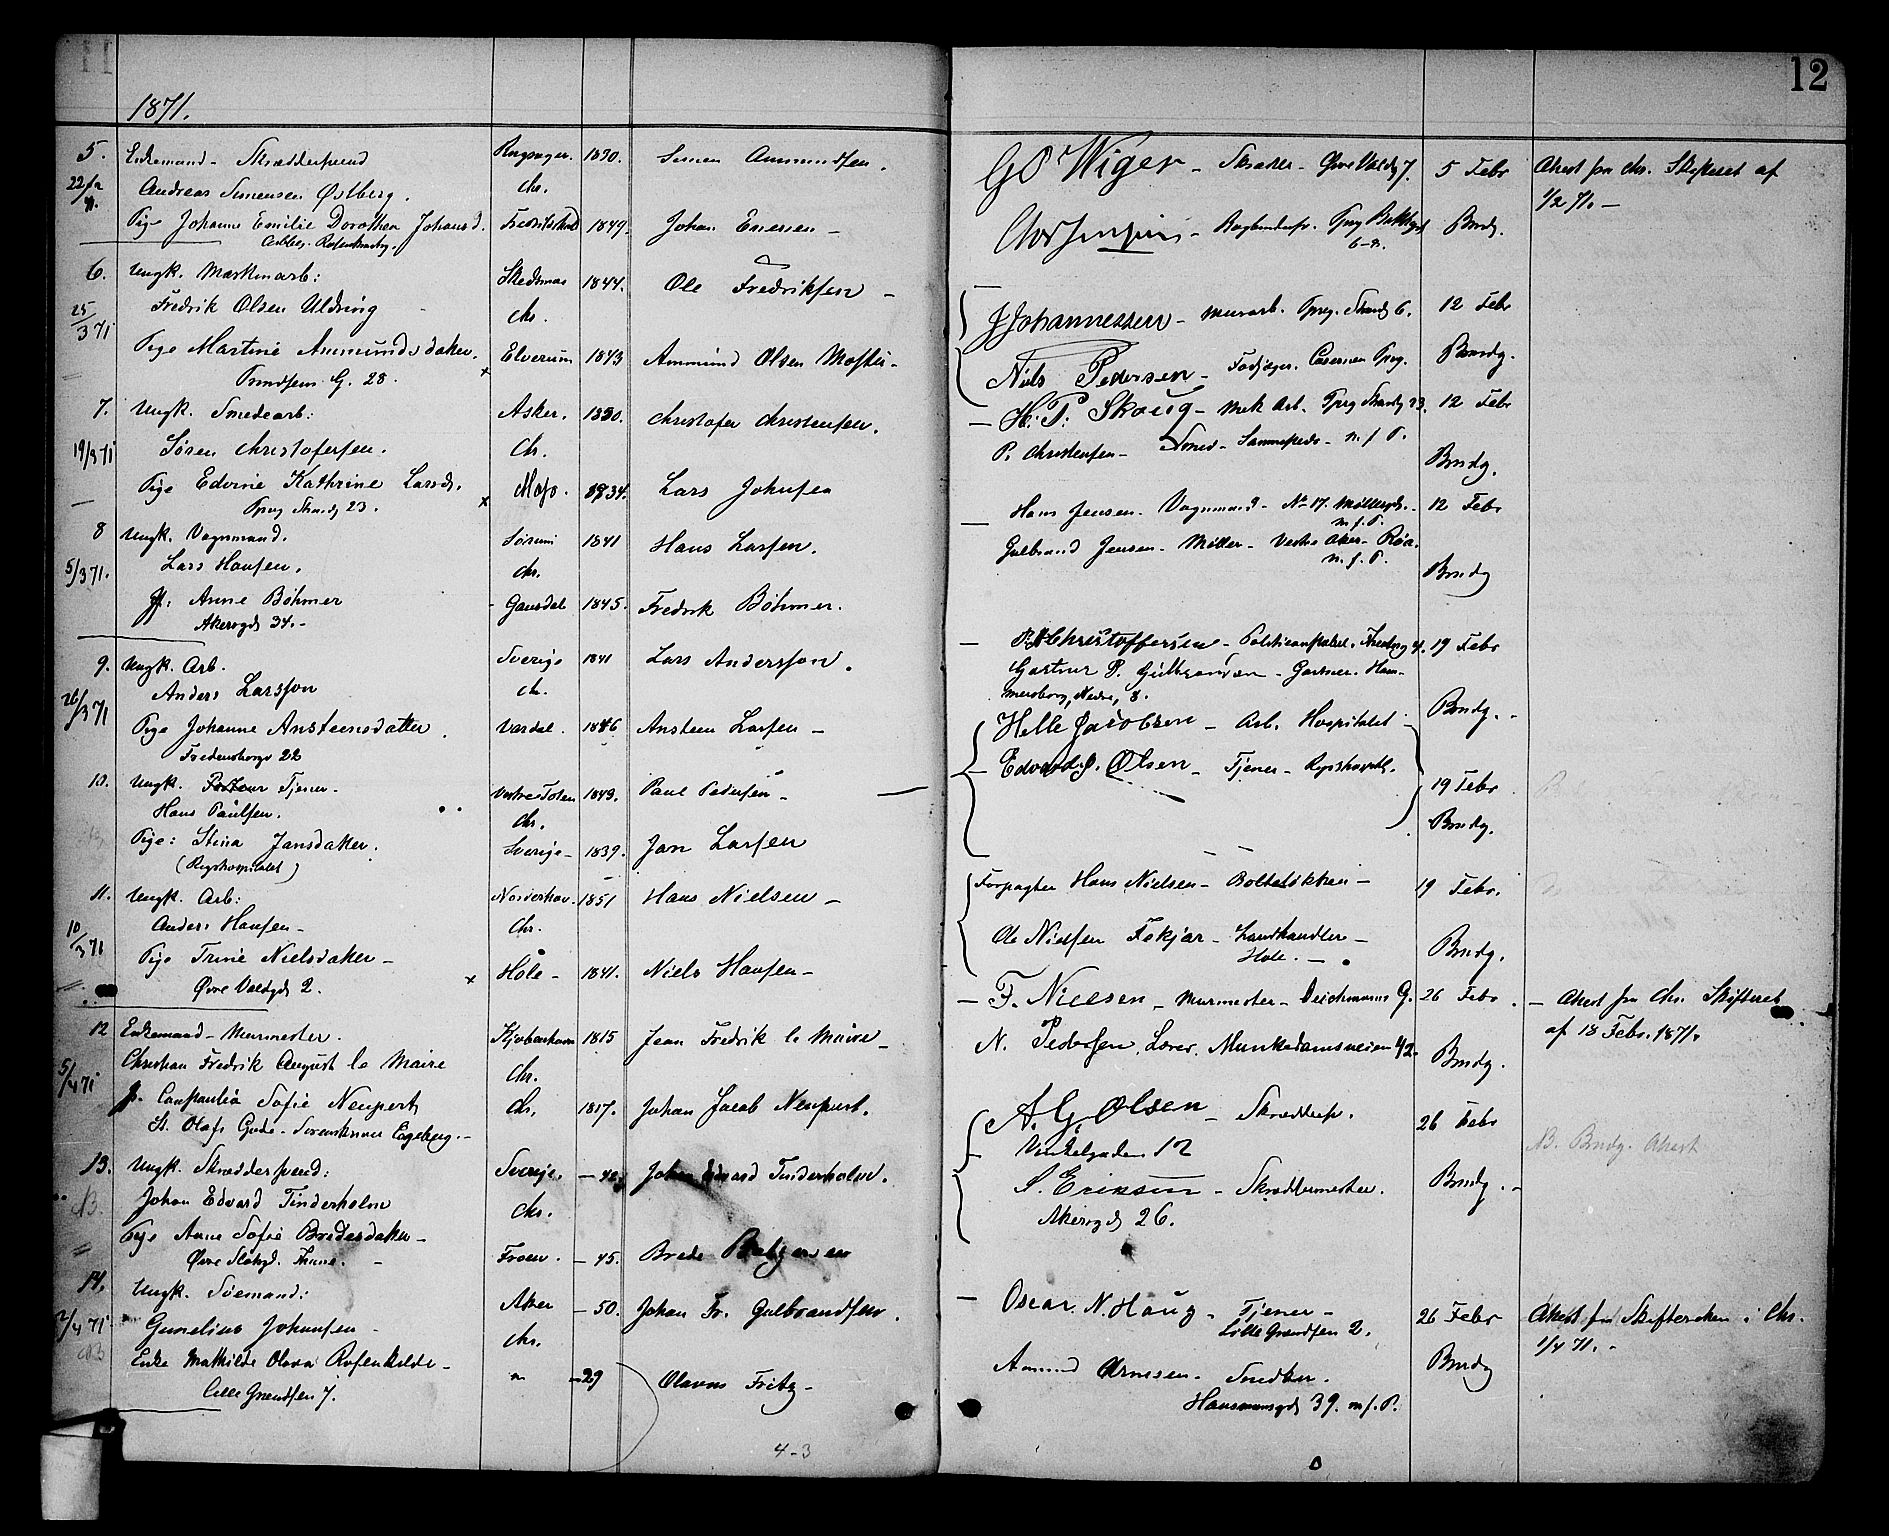 11
12
1871.
5. Enkemand - Skræddersvend Ringsager. 1830. Simen Ammundsen.
22/ Andreas Simensen Østberg. Chr.
Pige Johanne Emilie Dorothea Johansd. Fredrikshald 1849. Johan Enersen -
6. Ungk. Maskinarb: Skedsmo 1844. Ole Fredriksen -
25/3 71 Fredrik Olsen Chr.
Pige Martine Ammundsdatter. Elverum 1843 Ammund Olsen
G. 28.
7. Ungk. Smedearb: Asker. 1830. Christofer Christensen.
19/3 71 Søren Christofersen. Chr.
Pige Edvine Kathrine Larsd. Moss. 1834. Lars Johnsen
Tprg Strandg 23.
8 Ungk. Vognmand. Sørum 1841 Hans Larsen.
5/3 71. Lars Hansen. Chr.
Anne Böhmer Gausdal 1845. Fredrik Böhmer.
Akersgd 34. -
9. Ungk. Arb. Sverige 1841 Lars Andersson.
26/3 71 Anders Larsson Ch.
Pige Johanne Ansteensdatter Vardal. 1846 Ansteen Larsen -
Fredensborgv 22
10. Ungk. Tjener. Vestre Toten 1843. Paul Pedersen -
Hans Paulsen. Chr.
Pige: Stina Jansdatter. Sverige - 1839. Jan Larsen
(Rigshospitalet)
11. Ungk. Arb: Norderhov. 1851 Hans Nielsen -
10/3 71 Anders Hansen - Chr.
Pige Trine Nielsdatter - Hole - 1841. Niels Hansen -
Øvre Voldgd 2.
12 Enkemand - Murmester. Kjøbenhavn 1815 Jean Fredrik le Maire -
5/4 71 Christian Fredrik August le Maire Chr.
Sofie Neupert Ch. 1817. Johan Jacob Neupert.
St. Olafs Gade -
13. Ungk. Skrædersvend: Sverige. - 42. Johan Edvard Tinderholm.
Johan Edvard Tinderholm Chr.
Pige Anne Sofie Bredesdatter - Froen. - 45. Brede
Øvre Slotsgd.
14. Ungk. Sømand: Aker - 50. Johan Fr. Gulbrandsen.
2/4 71 Gunelius Johansen - Chr.
Enke Mathilde Olava Rosenkilde - " - 29 Olavus Fritz -
Lille Grændsen 7.
4-3
GO Wiger - Skræder - Øvre Voldg 7. 5 Febr Attest fra Chr. Skifteret af
1/2 71. -
Bogbindersv. Bndg.
J Johannessen - Murarb. Tprg. Strandg 6. 12 Febr
Niels Pedersen - Fodjæger. Casernen Tprg. Bndg.
H. P. Skoug - Mek Arb. Tprg Strandg 23. 12 Febr
P. Christensen - Smed - Sammesteds - m. f. P. Bndg.
Hans Jensen. Vognmand - No 17. Møllergd. - 12 Febr
m. f. P.
Gulbrand Jensen - Møller - Vestre Aker - Røa.
m. f. P. Bndg
Christoffersen - 19 Febr
Gartner P. - Gartner. Ham-
mersborg, Nedre, 8. Bndg. -
Helle Jacobsen - Arb. Hospitalet
Edvard Olsen - Tjener - Rigshospitl. 19 Febr
Bndg.
Forpagter Hans Nielsen - Bolteløkken - 19 Febr.
Ole Nielsen Fekjær - Landhandler -
Hole. - Bndg.
F. Nielsen - Murmester - Deichmanns G. 26 Febr. - Attest fra Chr. Skifteret
af 18 Febr. 1871.
N. Pedersen, Lærer, Munkedamsveien 42. Bndg.
A. G. Olsen - Skræddersv. 26 Febr
Vinkelgaden 12 NB. Bndg. Attest
S. Eriksen - Skræddermester. Bndg. -
Akersgd 26.
Oscar N. Haug - Tjener - 26 Febr Attest fra Skifteretten i Chr.
Lille Grændsen 2. 1/4 71. -
Amund Arnesen - Snedker. Bndg
Hausmannsgd 39. m. f. P.